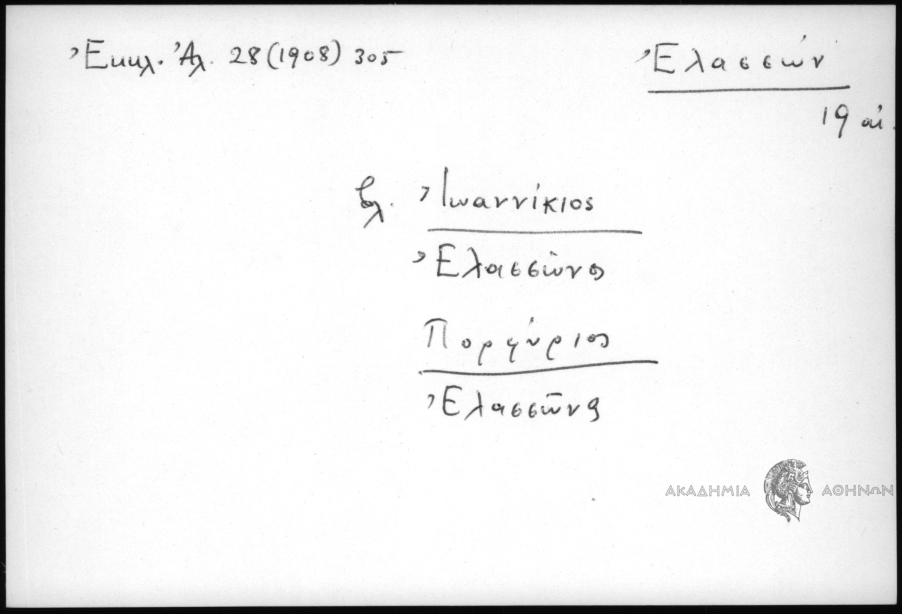 Ἐκκλ. Ἀλ. 28 (1908) 305
Ἐλασσών
19 αἰ.
βλ. Ἰωαννίκιος
Ἐλασσῶνος
Πορφύριος
Ἐλασσῶνος
ΑΚΑΔΗΜΙΑ ΑΘΗΝΩΝ